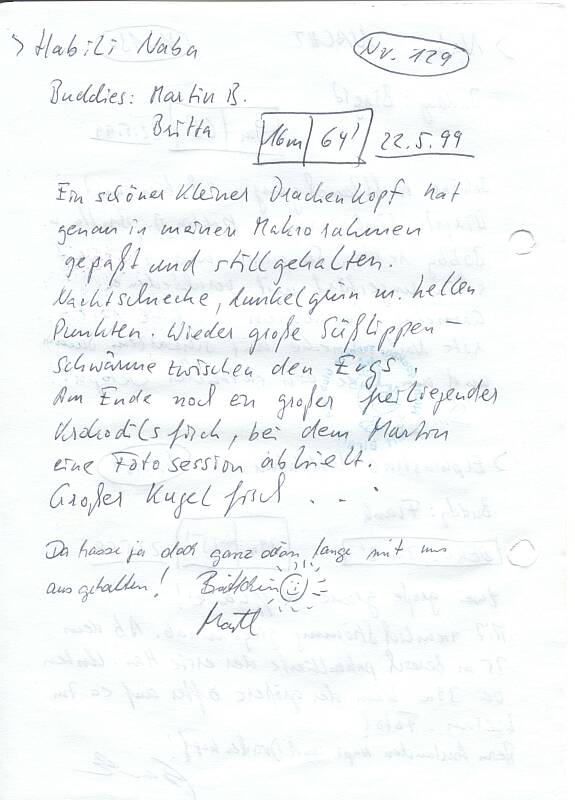 > Habili Naba
Nr. 129
Buddies: Martin B.
Britta
16m 64' 22.5.99
Ein schöner kleiner Drachenkopf hat
genau in meinen Makrorahmen
gepaßt und stillgehalten.
Nachtschnecke, dunkelgrün m. hellen
Punkten. Wieder große Süßlippen-
schwärme zwischen den Ergs.
Am Ende noch ein großer freiliegender
Krokodilsfisch, bei dem Martin
eine Fotosession abhielt.
Großer Kugelfisch . . .
Da hasse ja doch ganz schön lange mit uns
ausgehalten!